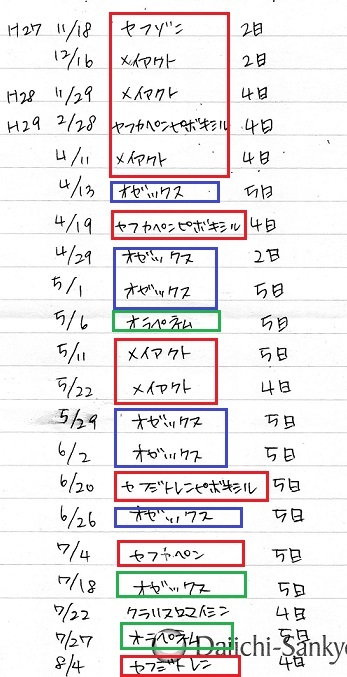 H27 11/18 セフゾン 2日
12/16 メイアクト 2日
H28 11/29 メイアクト 4日
H29 2/28 セフカペンピボキシル 4日
4/11 メイアクト 4日
4/13 オゼックス 5日
4/19 セフカペンピボキシル 4日
4/29 オゼックス 2日
5/1 オゼックス 5日
5/6 オラペネム 5日
5/11 メイアクト 5日
5/22 メイアクト 4日
5/29 オゼックス 5日
6/2 オゼックス 5日
6/20 セフジトレンピボキシル 5日
6/26 オゼックス 5日
7/4 セフカペン 5日
7/18 オゼックス 5日
7/22 クラリスロマイシン 4日
7/27 オラペネム 5日
Daiichi-Sankyo
8/4 セフジトレン 4日